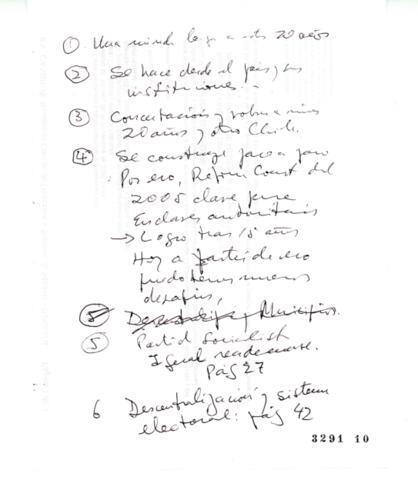 ① Una mirada larga a estos 20 años
② Se hace desde el país y sus
instituciones.
③ Concertación y
20 años y otro Chile.
④ Se construye paso a paso
Por eso, Reform Const del
2005 clave
Enclaves autoritarios
→ Logro tras 15 años
Hoy a partir de eso
puedo tener nuevos
desafíos,
y Municipios.
5 Partido Socialista
Igual
Pág 27
6 Descentralización y sistema
electoral: pág 42
3291 10